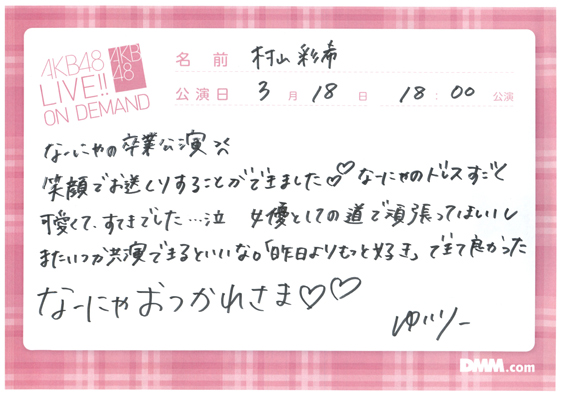 AKB48
LIVE!!
ON DEMAND
AKB
48
名前 村山彩希
公演日 3月18日 18:00公演
なーにゃの卒業公演
笑顔でお送くりすることができました♡♡ なーにゃのドレスすごく
可愛くて、すてきでした…泣 女優としての道で頑張ってほしいし
またいつか共演できるといいな。「昨日よりもっと好き」できて良かった
なーにゃおつかれさま♡♡
ゆいりー
DMM.com